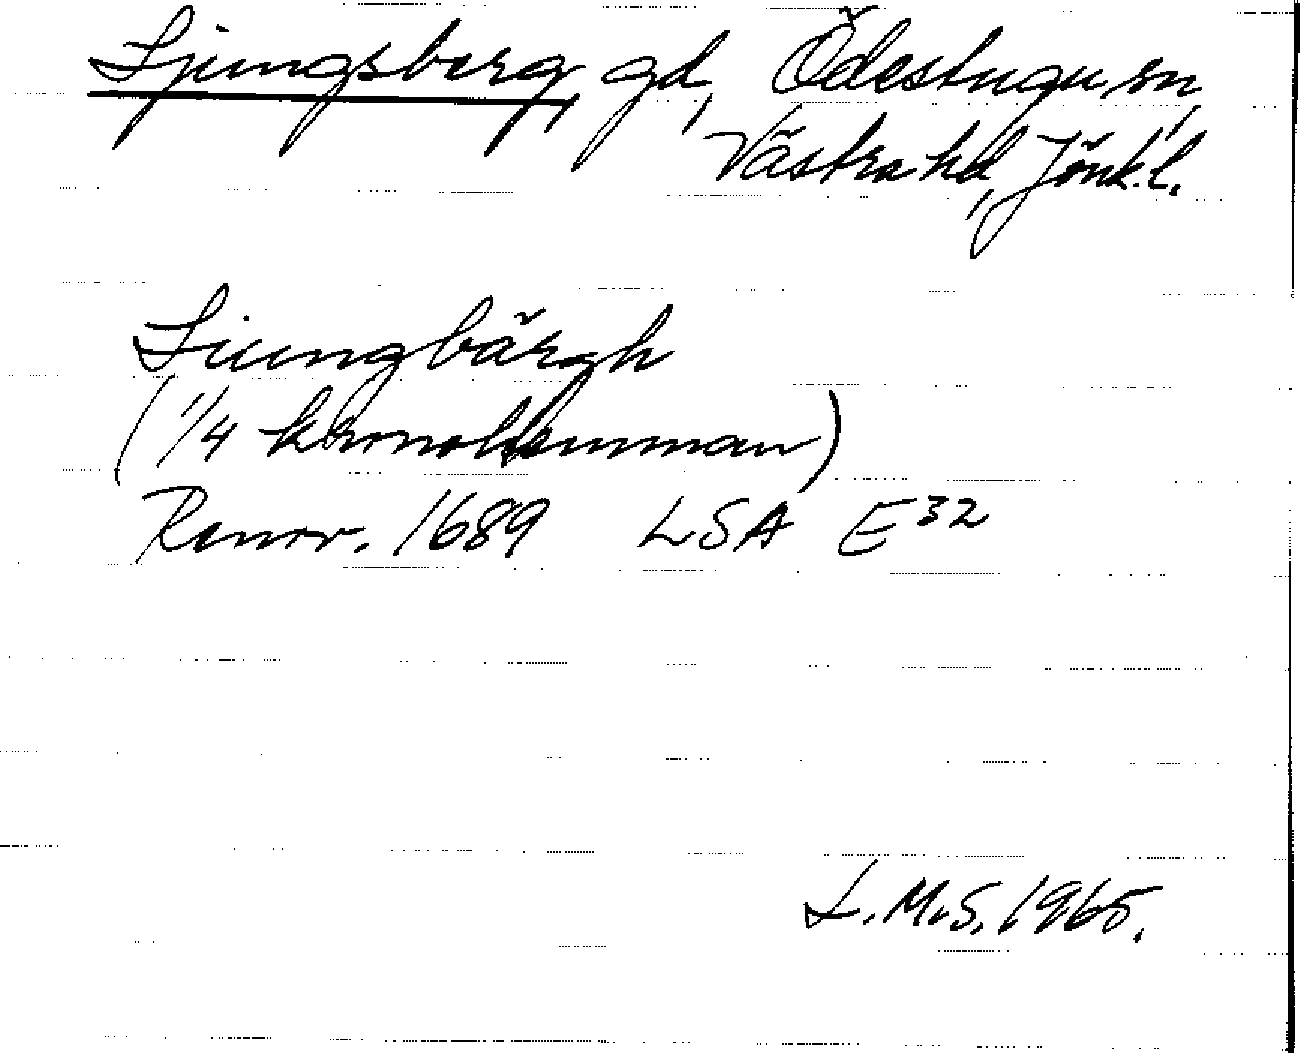 Ljungsberg, gd, Ödestugu sn,
Västra hd, Jönk. l.
Liungbärgh
(1/4 kronohemman)
Renov. 1689 LSA E32
L. M. S. 1965.